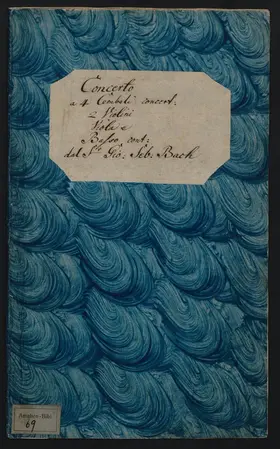 Concerto
a 4 Cembali concert:
2 Violini
Viola e
Basso cont:
dal Sr. Gio. Seb. Bach
Amalien-Bibl.
69